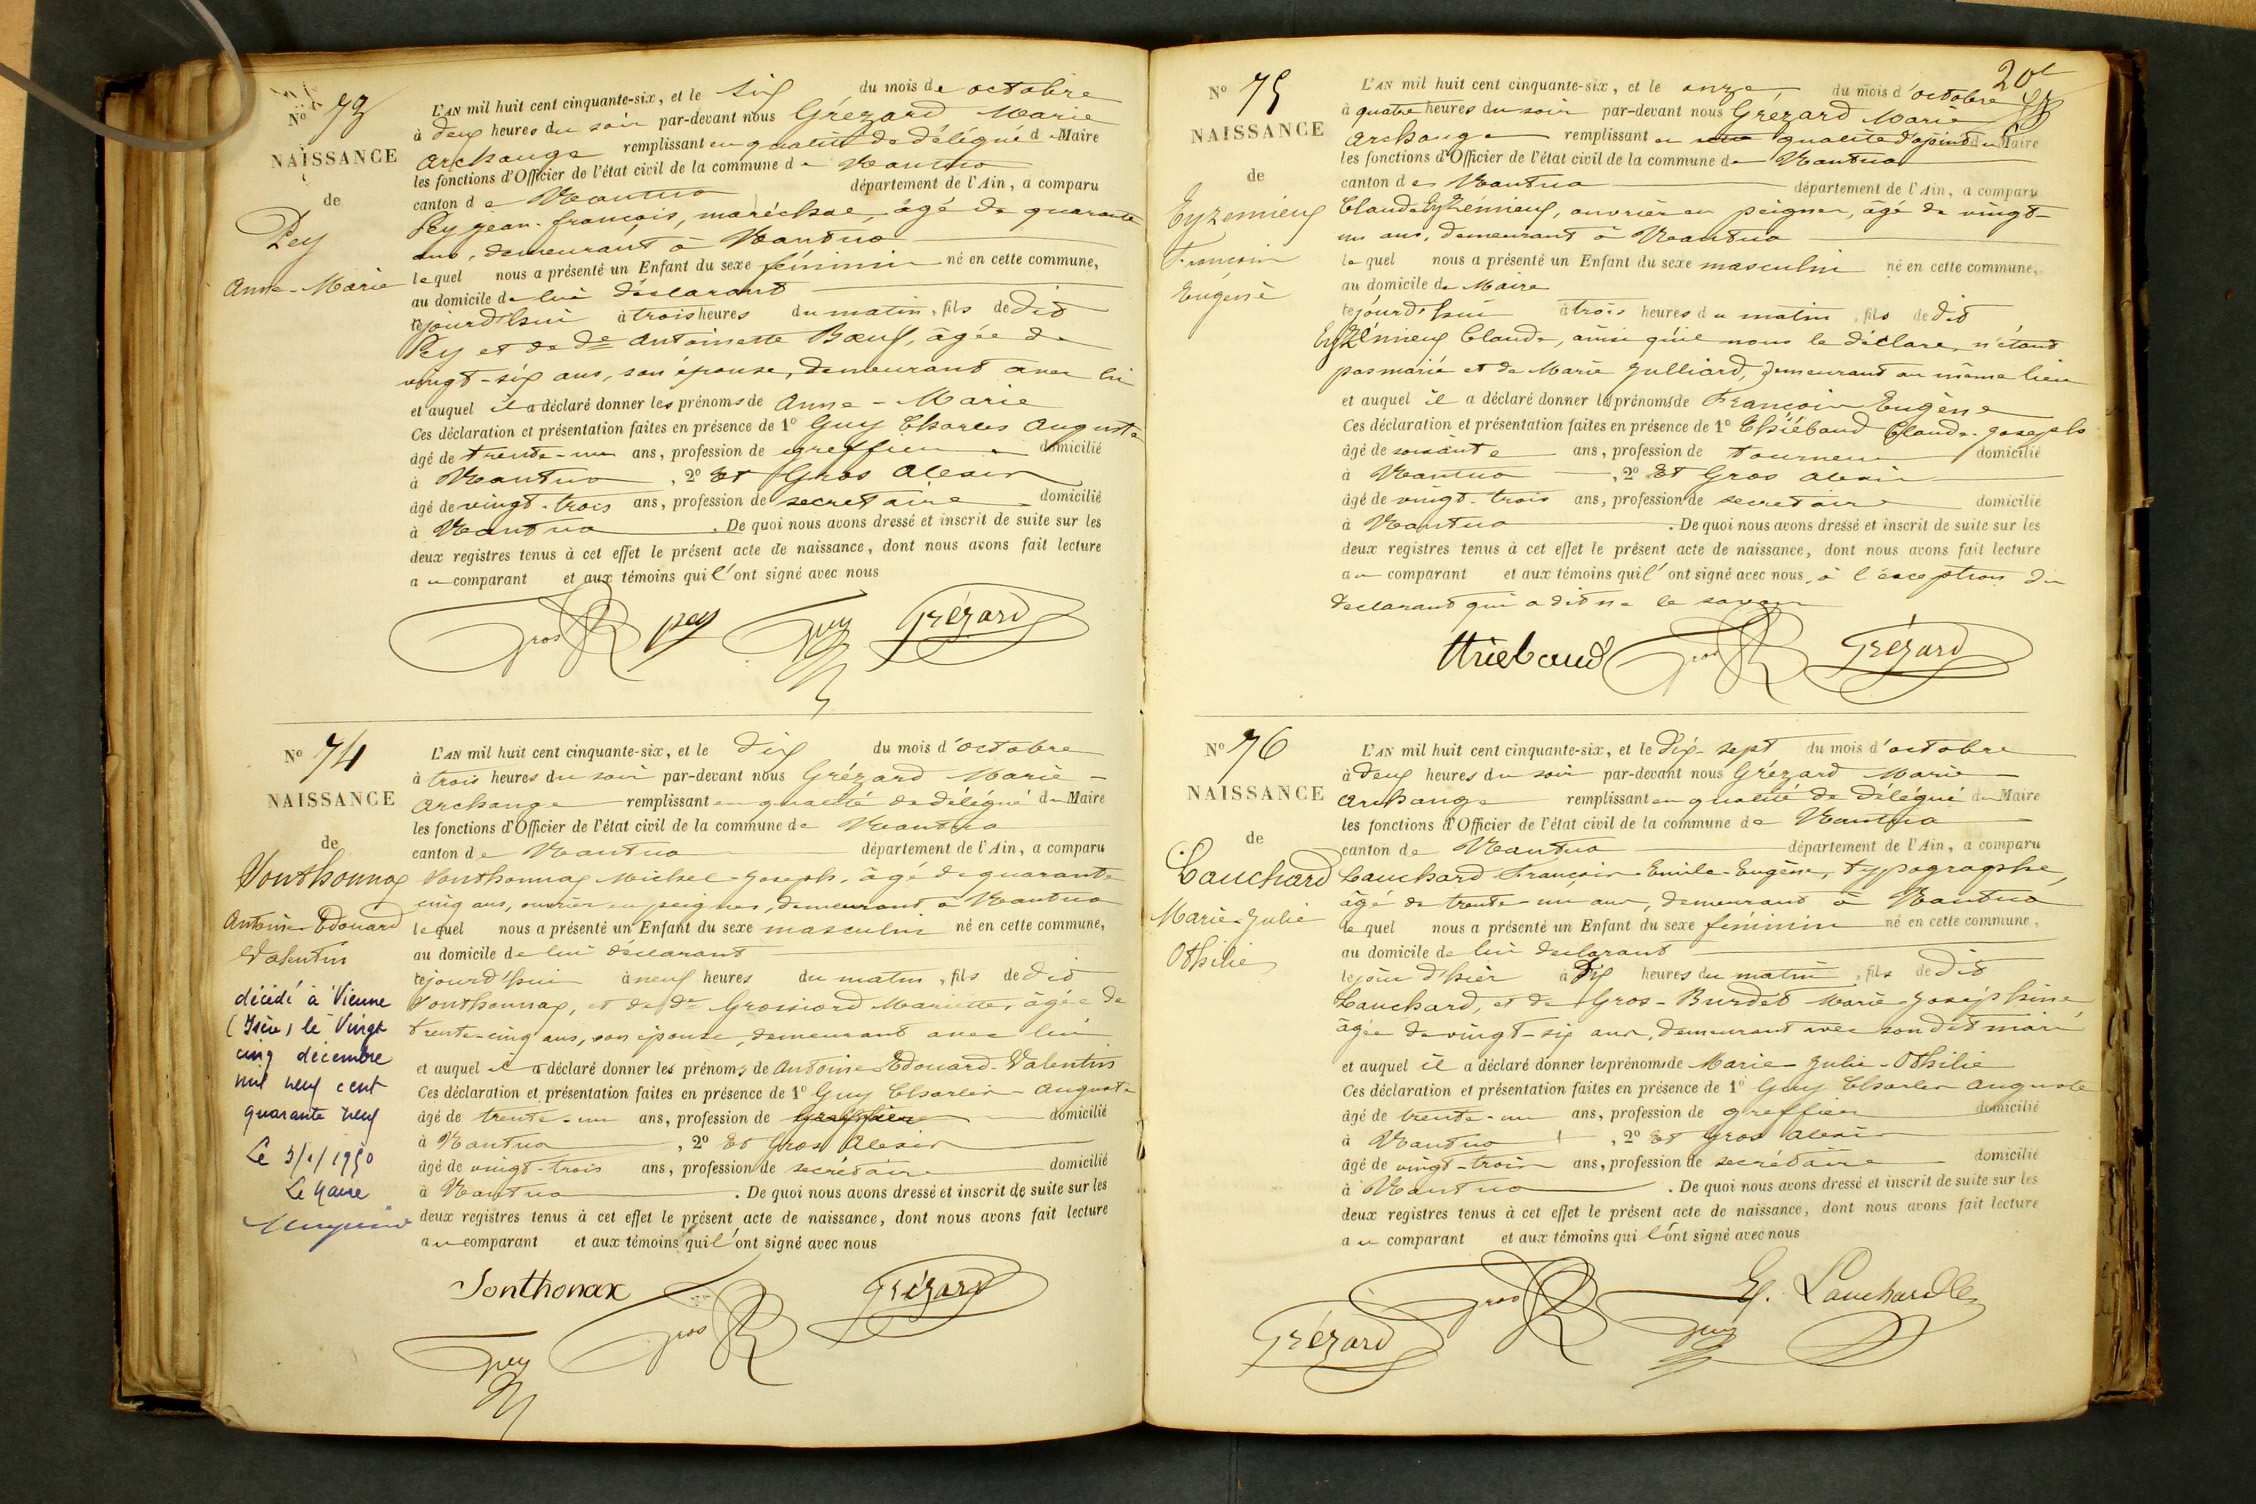 N° 73
NAISSANCE
de
Pey
Anne-Marie
L'AN mil huit cent cinquante-six, et le six du mois de octobre
à deux heures du soir par-devant nous Grézard Marie
Archange remplissant en qualité de délégué du Maire
les fonctions d'Officier de l'état civil de la commune de Nantua
canton de Nantua département de l'Ain, a comparu
Pey jean-françois, maréchal, âgé de quarante
ans, demeurant à Nantua
lequel nous a présenté un Enfant du sexe féminin né en cette commune,
au domicile de lui déclarant
cejourd'hui à trois heures du matin, fils de dit
Pey et de de Antoinette Bœuf, âgée de
vingt-six ans, son épouse, demeurant avec lui
et auquel il a déclaré donner les prénoms de Anne-Marie
Ces déclaration et présentation faites en présence de 1° Guy Charles Auguste
âgé de trente-un ans, profession de greffier domicilié
à Nantua, 2° Et Gros Alexis
âgé de vingt-trois ans, profession de secrétaire domicilié
à Nantua. De quoi nous avons dressé et inscrit de suite sur les
deux registres tenus à cet effet le présent acte de naissance, dont nous avons fait lecture
au comparant et aux témoins qui l'ont signé avec nous
Gros Pey Guy Grézard
N° 74
NAISSANCE
de
Sonthonnax
Antoine-Edouard
Valentin
décédé à Vienne
(Isère) le Vingt
cinq décembre
mil neuf cent
quarante neuf
Le 3/1/1950
Le Maire
L'AN mil huit cent cinquante-six, et le dix du mois d'octobre
à trois heures du soir par-devant nous Grézard Marie-
Archange remplissant en qualité de délégué du Maire
les fonctions d'Officier de l'état civil de la commune de Nantua
canton de Nantua département de l'Ain, a comparu
Sonthonnax Michel-Joseph, âgé de quarante
cinq ans, ouvrier en peignes, demeurant à Nantua
lequel nous a présenté un Enfant du sexe masculin né en cette commune,
au domicile de lui déclarant
cejourd'hui à neuf heures du matin, fils de dit
Sonthonnax, et de de Grossiord Mariette, âgée de
trente-cinq ans, son épouse, demeurant avec lui
et auquel il a déclaré donner les prénoms de Antoine-Edouard-Valentin
Ces déclaration et présentation faites en présence de 1° Guy Charles-Auguste
âgé de trente-un ans, profession de greffier domicilié
à Nantua, 2° Et Gros Alexis
âgé de vingt-trois ans, profession de secrétaire domicilié
à Nantua. De quoi nous avons dressé et inscrit de suite sur les
deux registres tenus à cet effet le présent acte de naissance, dont nous avons fait lecture
au comparant et aux témoins qui l'ont signé avec nous
Sonthonax Gros Grézard
Guy
N° 75
NAISSANCE
de
Eyzemieux
François
Eugène
L'AN mil huit cent cinquante-six, et le onze, du mois d'octobre
à quatre heures du soir par-devant nous Grézard Marie
Archange remplissant en qualité d'adjoint du Maire
les fonctions d'Officier de l'état civil de la commune de Nantua
canton de Nantua département de l'Ain, a comparu
Claude Eyzémieux, ouvrier en peignes, âgé de vingt-
un ans, demeurant à Nantua
lequel nous a présenté un Enfant du sexe masculin né en cette commune,
au domicile de Maire
cejourd'hui à trois heures du matin, fils de dit
Eyzémieux Claude, ainsi qu'il nous le déclare, n'étant
pas marié et de Marie Julliard, demeurant au même lieu
et auquel il a déclaré donner les prénoms de François Eugène
Ces déclaration et présentation faites en présence de 1° Thiébaud Claude-Joseph
âgé de soixante ans, profession de tourneur domicilié
à Nantua, 2° Et Gros Alexis
âgé de vingt-trois ans, profession de secrétaire domicilié
à Nantua. De quoi nous avons dressé et inscrit de suite sur les
deux registres tenus à cet effet le présent acte de naissance, dont nous avons fait lecture
au comparant et aux témoins qui l'ont signé avec nous, à l'exception du
déclarant qui a dit ne le savoir
thiebaud Gros Grézard
N° 76
NAISSANCE
de
Lauchard
Marie-Julie
Othilie
L'AN mil huit cent cinquante-six, et le dix-sept du mois d'octobre
à deux heures du soir par-devant nous Grézard Marie-
Archange remplissant en qualité de délégué du Maire
les fonctions d'Officier de l'état civil de la commune de Nantua
canton de Nantua département de l'Ain, a comparu
Lauchard François-Emile-Eugène, typographe,
âgé de trente-un ans, demeurant à Nantua
lequel nous a présenté un Enfant du sexe féminin né en cette commune,
au domicile de lui déclarant
le jour d'hier à dix heures du matin, fils de dit
Lauchard, et de Gros-Burdet Marie-Joséphine
âgée de vingt-six ans, demeurant avec son dit mari
et auquel il a déclaré donner les prénoms de Marie-Julie-Othilie
Ces déclaration et présentation faites en présence de 1° Guy Charles Auguste
âgé de trente-un ans, profession de greffier domicilié
à Nantua, 2° Et Gros Alexis
âgé de vingt-trois ans, profession de secrétaire domicilié
à Nantua. De quoi nous avons dressé et inscrit de suite sur les
deux registres tenus à cet effet le présent acte de naissance, dont nous avons fait lecture
au comparant et aux témoins qui l'ont signé avec nous
Grézard Gros Guy E. Lauchard